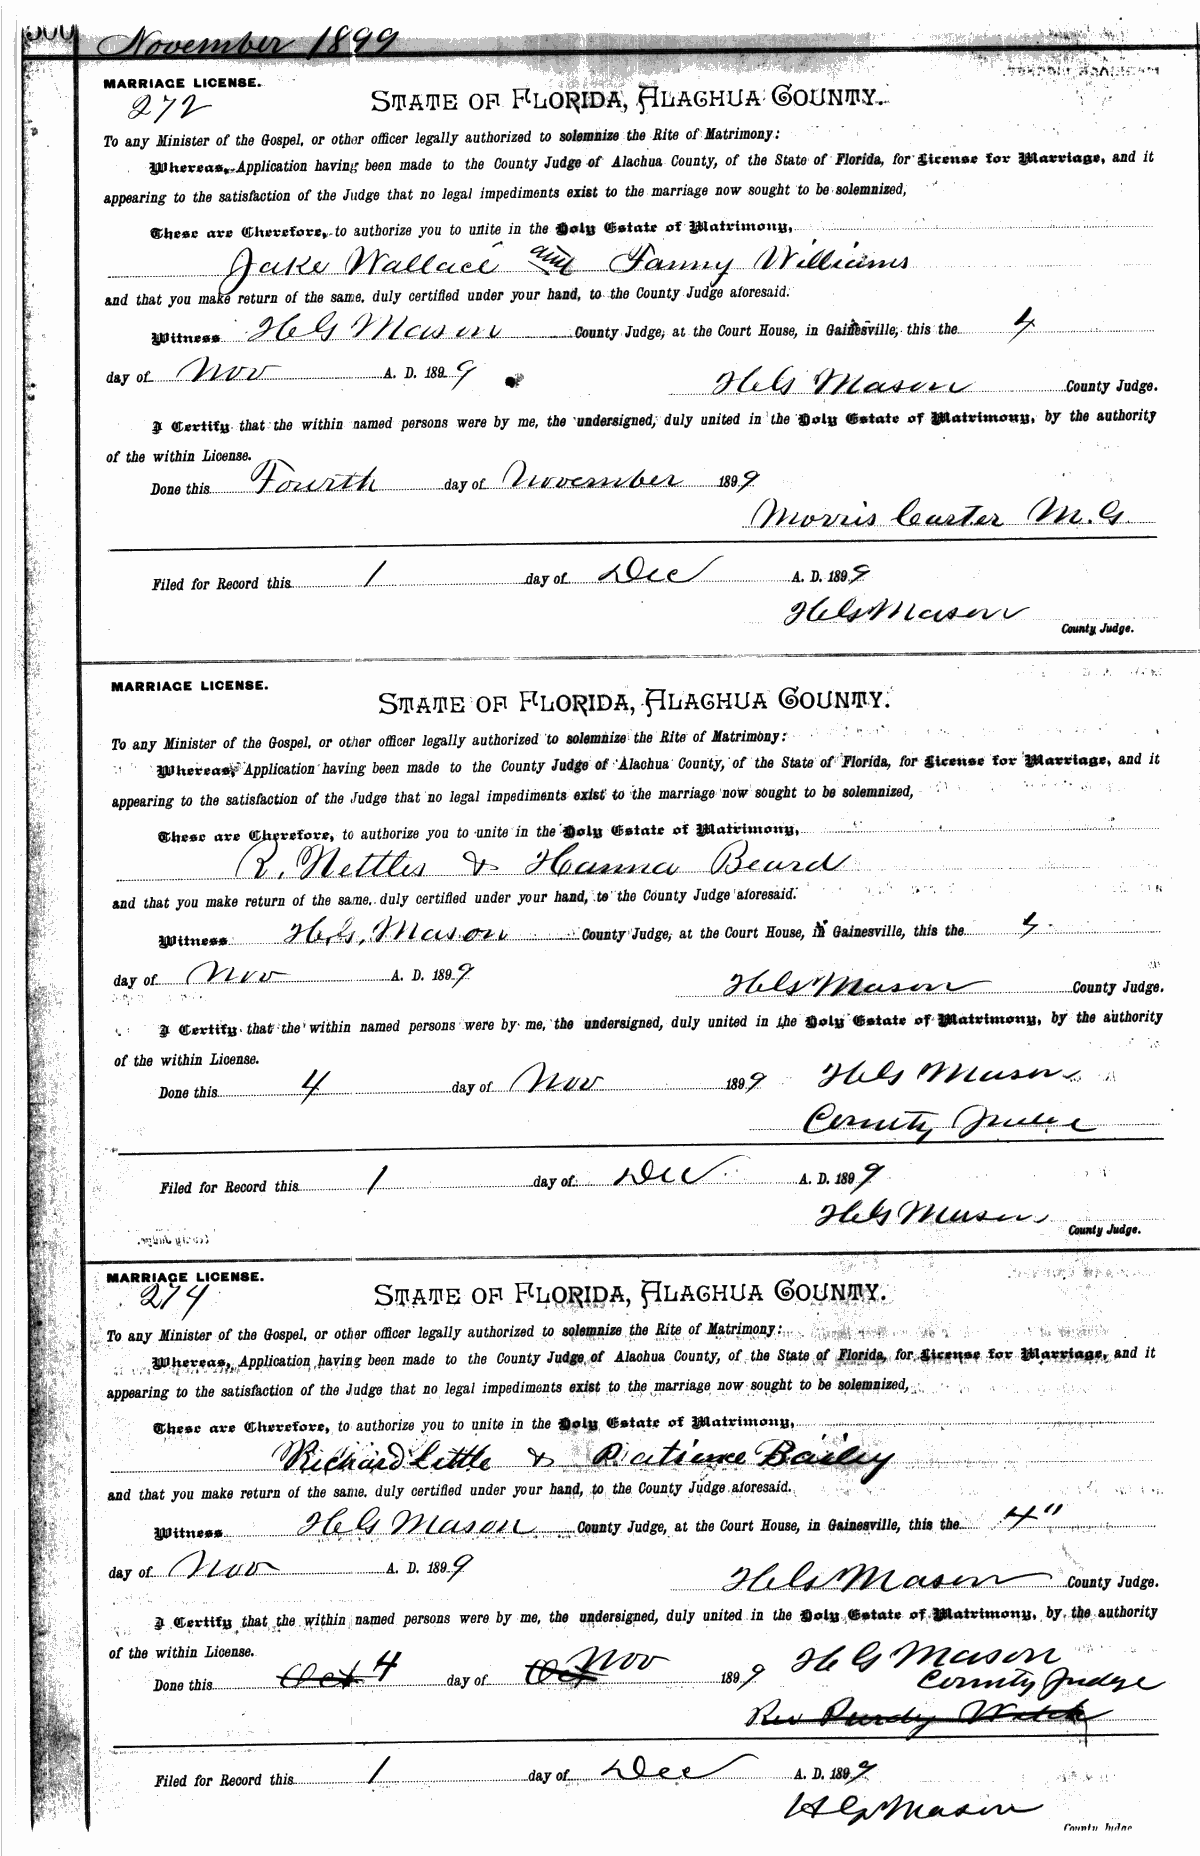 November 1899
MARRIAGE LICENSE.
272
STATE OF FLORIDA, ALACHUA COUNTY.
To any Minister of the Gospel, or other officer legally authorized to solemnize the Rite of Matrimony:
Whereas, Application having been made to the County Judge of Alachua County, of the State of Florida, for License for Marriage, and it
appearing to the satisfaction of the Judge that no legal impediments exist to the marriage now sought to be solemnized,
These are Therefore, to authorize you to unite in the Holy Estate of Matrimony,
Jake Wallace and Fanny Williams
and that you make return of the same, duly certified under your hand, to the County Judge aforesaid.
Witness H G Mason County Judge, at the Court House, in Gainesville, this the 4
day of Nov A. D. 1899
H G Mason County Judge.
I Certify that the within named persons were by me, the undersigned, duly united in the Holy Estate of Matrimony, by the authority
of the within License.
Done this Fourth day of November 1899
Morris Carter M.G.
Filed for Record this 1 day of Dec A. D. 1899
H G Mason
County Judge.
MARRIAGE LICENSE.
STATE OF FLORIDA, ALACHUA COUNTY.
To any Minister of the Gospel, or other officer legally authorized to solemnize the Rite of Matrimony:
Whereas, Application having been made to the County Judge of Alachua County, of the State of Florida, for License for Marriage, and it
appearing to the satisfaction of the Judge that no legal impediments exist to the marriage now sought to be solemnized,
These are Therefore, to authorize you to unite in the Holy Estate of Matrimony,
R. Nettles & Hanna Beard
and that you make return of the same, duly certified under your hand, to the County Judge aforesaid.
Witness H. G. Mason County Judge, at the Court House, in Gainesville, this the 4
day of Nov A. D. 1899
H G Mason County Judge.
I Certify that the within named persons were by me, the undersigned, duly united in the Holy Estate of Matrimony, by the authority
of the within License.
Done this 4 day of Nov 1899 H G Mason
County Judge
Filed for Record this 1 day of Dec A. D. 1899
H G Mason
County Judge.
MARRIAGE LICENSE.
274
STATE OF FLORIDA, ALACHUA COUNTY.
To any Minister of the Gospel, or other officer legally authorized to solemnize the Rite of Matrimony:
Whereas, Application having been made to the County Judge of Alachua County, of the State of Florida, for License for Marriage, and it
appearing to the satisfaction of the Judge that no legal impediments exist to the marriage now sought to be solemnized,
These are Therefore, to authorize you to unite in the Holy Estate of Matrimony,
Richard Little & Patience Bailey
and that you make return of the same, duly certified under your hand, to the County Judge aforesaid.
Witness H G Mason County Judge, at the Court House, in Gainesville, this the 4"
day of Nov A. D. 1899
H G Mason County Judge.
I Certify that the within named persons were by me, the undersigned, duly united in the Holy Estate of Matrimony, by the authority
of the within License.
Done this Oct 4 day of Oct Nov 1899 H G Mason
County Judge
Rev Purdy
Filed for Record this 1 day of Dec A. D. 1899
H G Mason
County Judge